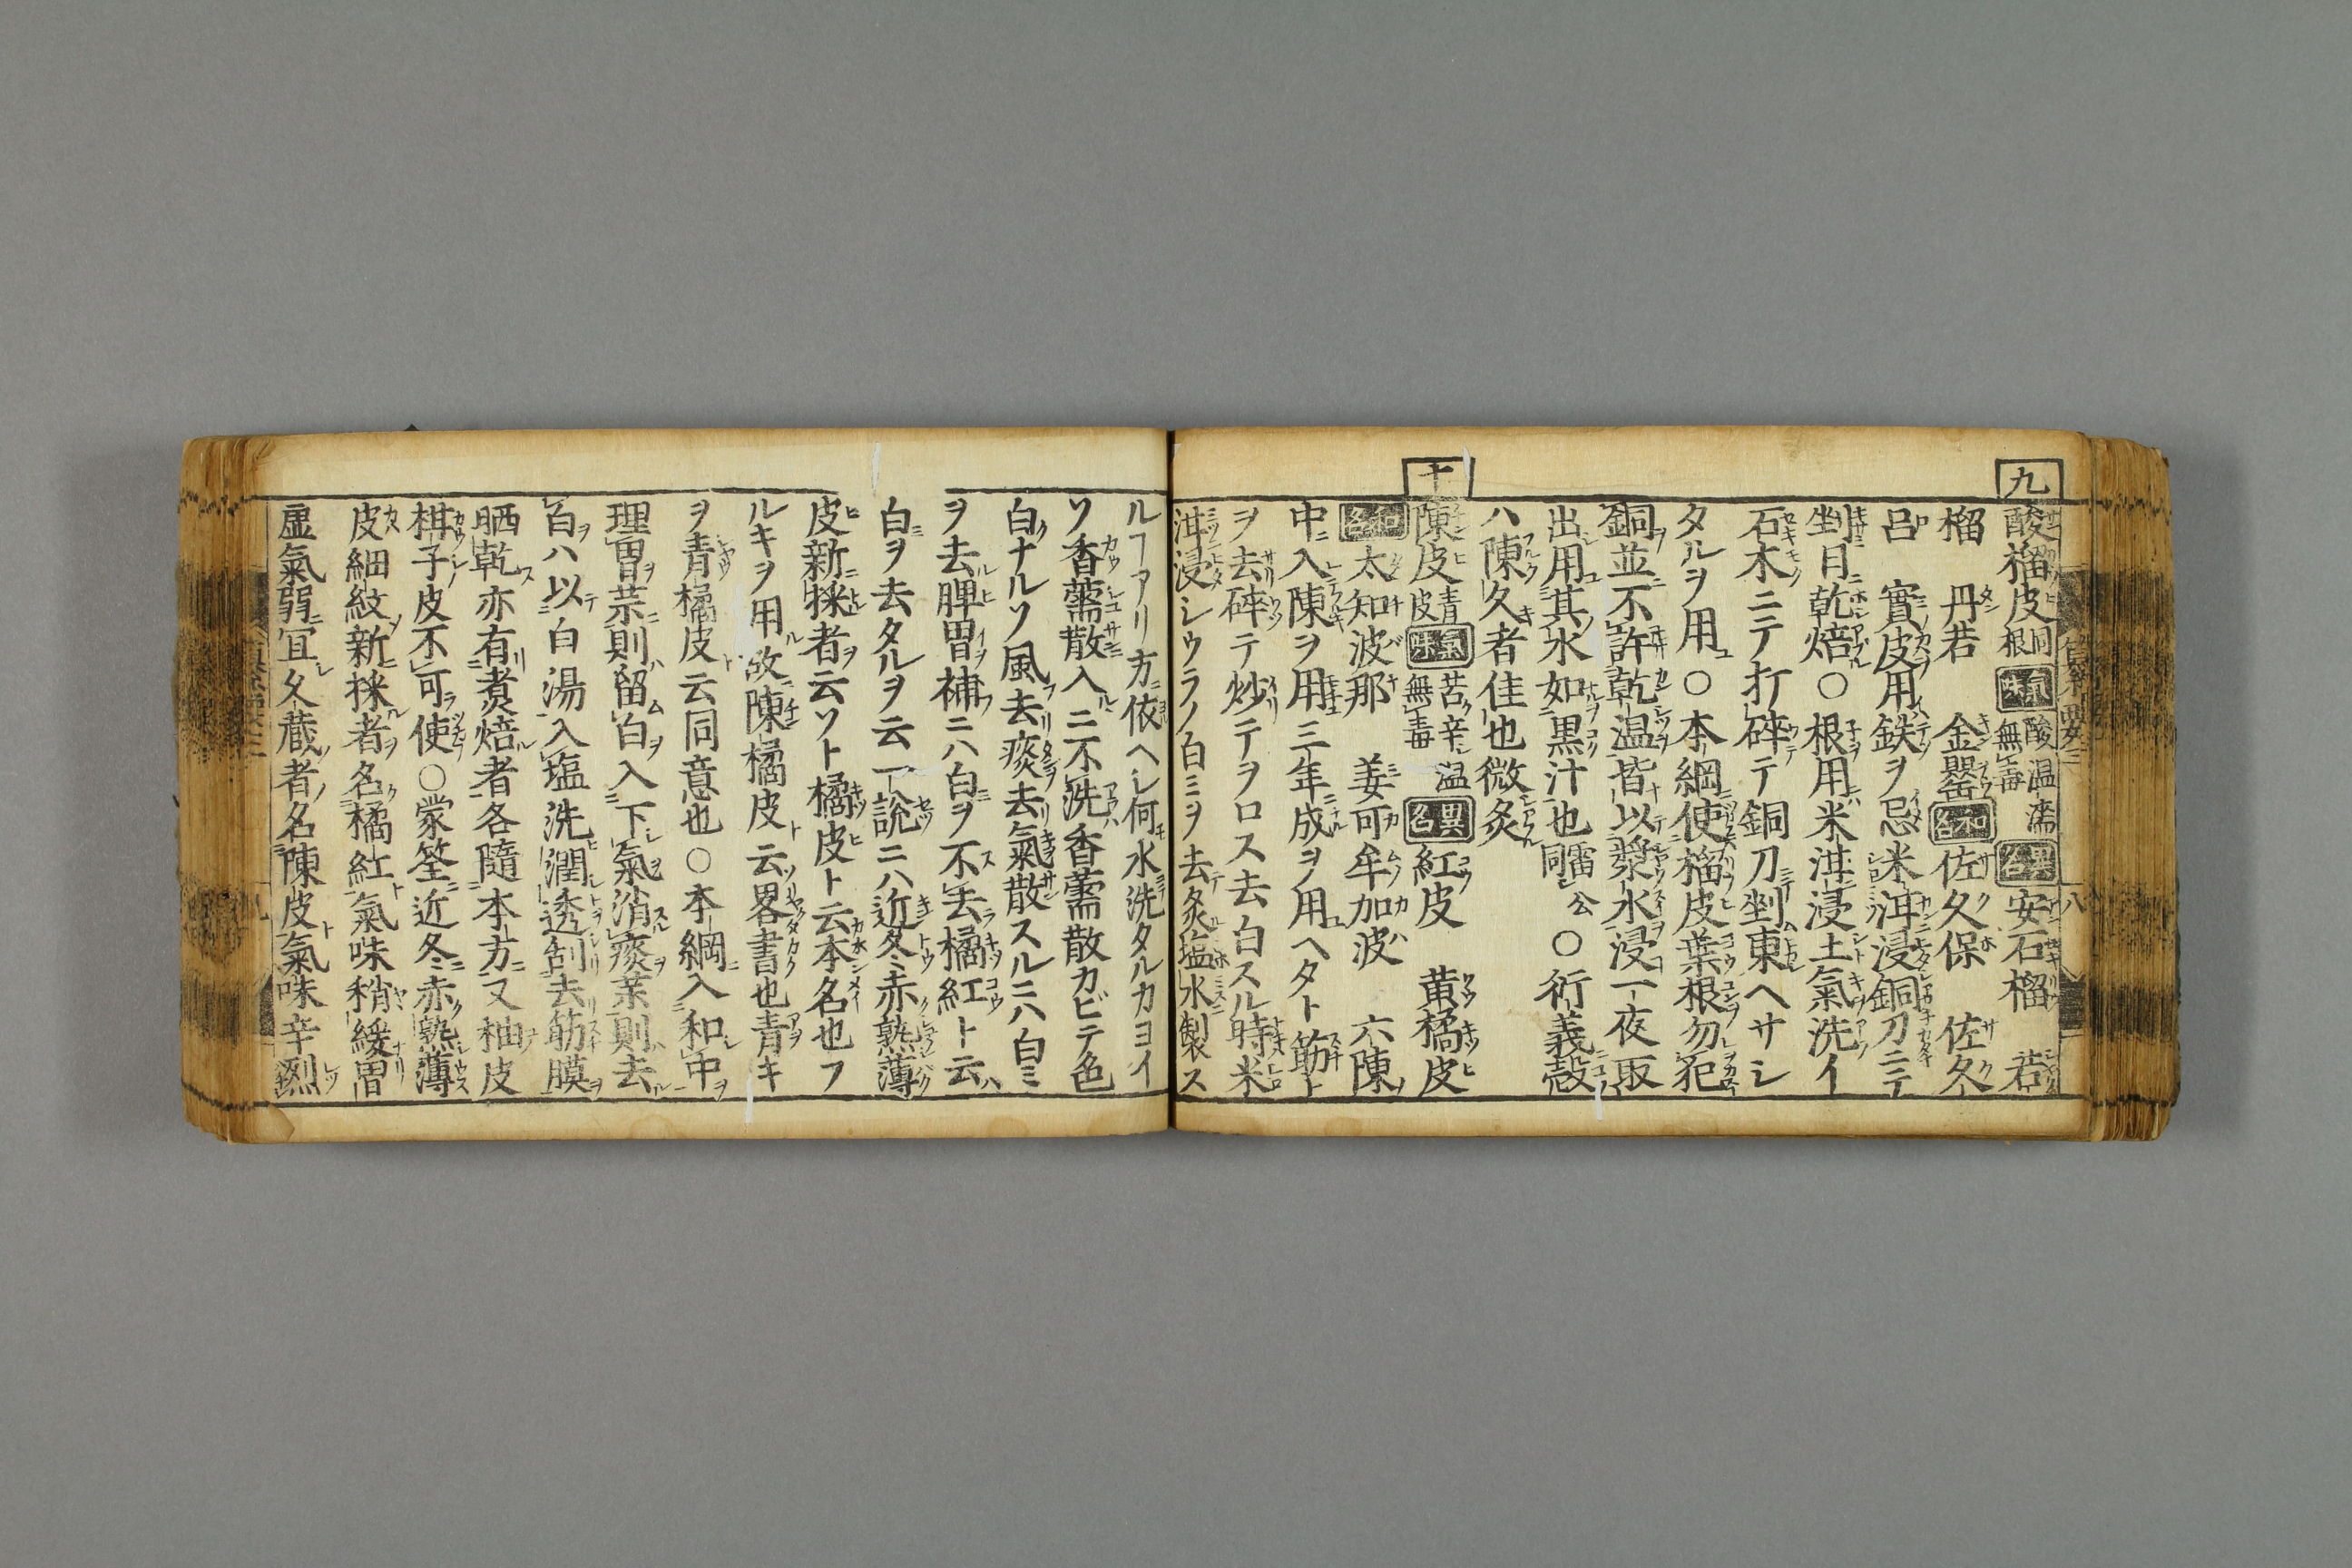 九
酸榴皮 根同 氣味 酸温濇 無毒 異名 安石榴 若
榴 丹若 金罌 和名 佐久保 佐久
呂 實皮用鉄ヲ忌米泔浸銅刀ニテ
剉日乾焙○根用米泔浸土氣洗イ
石木ニテ打碎テ銅刀剉東ヘサシ
タルヲ用○本綱使榴皮葉根勿犯
銅並不許乾温皆以漿水浸一夜取
出用其水如黒汁也同雷公○衍義殻
ハ陳久者佳也微炙
十
陳皮 青皮 氣味 苦辛温 無毒 異名 紅皮 黄橘皮
和名 太知波那 姜可牟加波 六陳ノ
中入陳ヲ用三年成ヲ用ヘタト筋ト
ヲ去碎テ炒テヲロス去白スル時米
泔浸シウラノ白ミヲ去炙塩水製ス
ルヿアリ方依ヘシ何水洗タルカヨイ
ソ香薷散入ニ不洗香薷散カビテ色
白ナルソ風去痰去氣散スルニハ白ミ
ヲ去脾胃補ニハ白ヲ不去橘紅ト云ハ
白ヲ去タルヲ云一説ニハ近冬赤熟薄
皮新採者云ソト橘皮ト云本名也フ
ルキヲ用故陳橘皮ト云畧書也青キ
ヲ青橘皮ト云同意也○本綱入和中
理胃藥則留白入下氣消痰薬則去
白ハ以白湯入塩洗潤透刮去筋膜
晒乾亦有煮焙者各隨本方又柚皮
柑子皮不可使○蒙筌近冬赤熟薄
皮細紋新採者名橘紅氣味稍緩胃
虚氣弱宜久蔵者名陳皮氣味辛烈